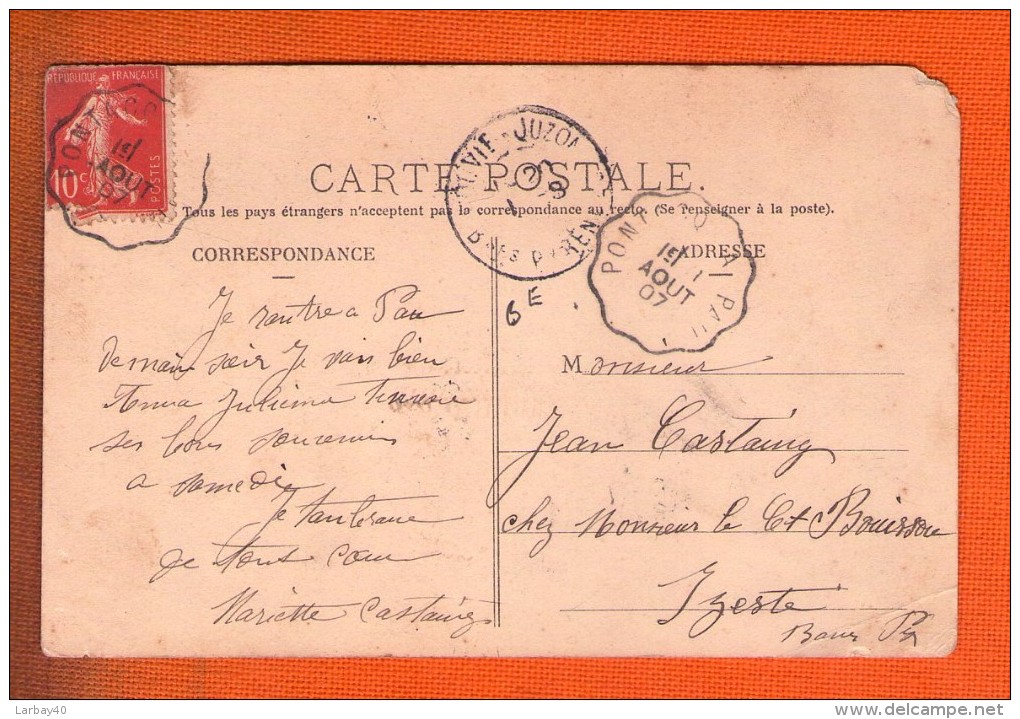 RÉPUBLIQUE FRANÇAISE
10c POSTES
PONTACQ
1E/
AOUT
07
JUZON
BSES PYRÉN
CARTE POSTALE.
Tous les pays étrangers n'acceptent pas la correspondance au recto. (Se renseigner à la poste).
CORRESPONDANCE
ADRESSE
PONTACQ A PAU
1E/ 1
AOUT
07
6E
Je rentre a Pau
demain soir Je vais bien
Anna Julienne
ses bons souvenirs
a samedi
Je t'embrasse
de tout cœur
Mariette Castaing
Monsieur
Jean Castaing
chez Monsieur le Ct Bouisson
Izeste
Basses Py
Larbay40
delcampe.net